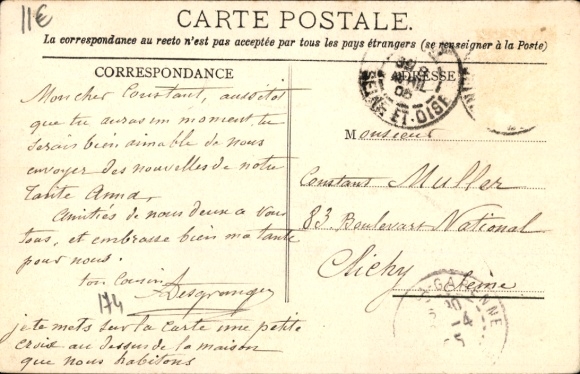 11€
CARTE POSTALE.
la correspondance au recto n'est pas acceptée par tous les pays étrangers (se renseigner à la Poste)
CORRESPONDANCE
ADRESSE
SEINE-ET-OISE
Mon cher Constant, aussitot
que tu auras un moment, tu
serais bien aimable de nous
envoyer des nouvelles de notre
tante Anna,
Amitiés de nous deux a vous
tous, et embrasse bien ma tante
pour nous.
ton cousin
Desgranges
174
je te mets sur la carte une petite
croix au dessus de la maison
que nous habitons
Monsieur
Constant Muller
83 Boulevart National
Clichy
Seine
GARENNE